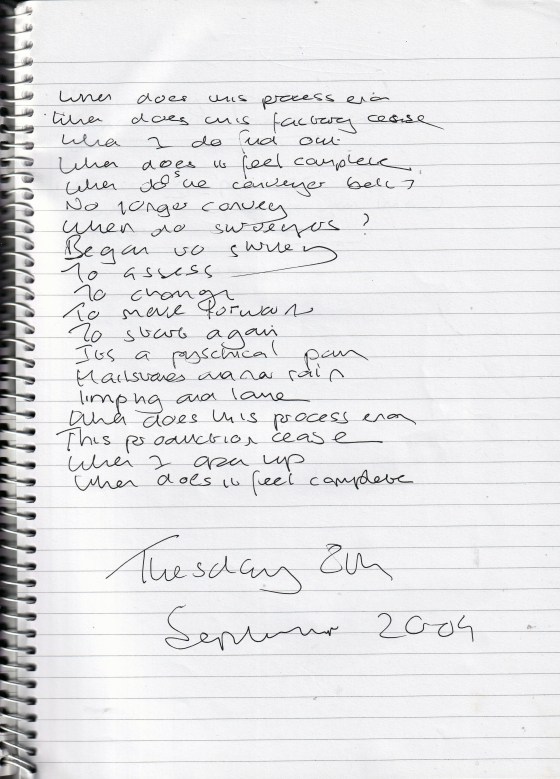 When does this process end
When does this factory cease
When I do find out
When does it feel complete
When does the conveyer belt
No longer convey
When do surveyors ?
Began to survey
To assess
To change
To move forward
To start again
Its a pyschical pain
Hailstones and rain
limping and lame
When does this process end
This production cease
When I open up
When does it feel complete
Tuesday 8th
September 2009